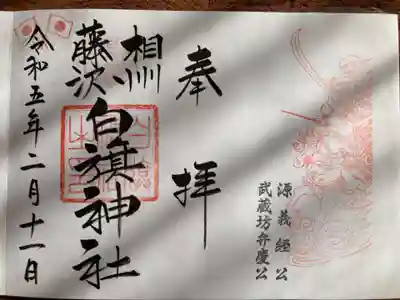 奉拝
源義經公
武蔵坊弁慶公
相州
藤沢
白旗神社
令和五年二月十一日